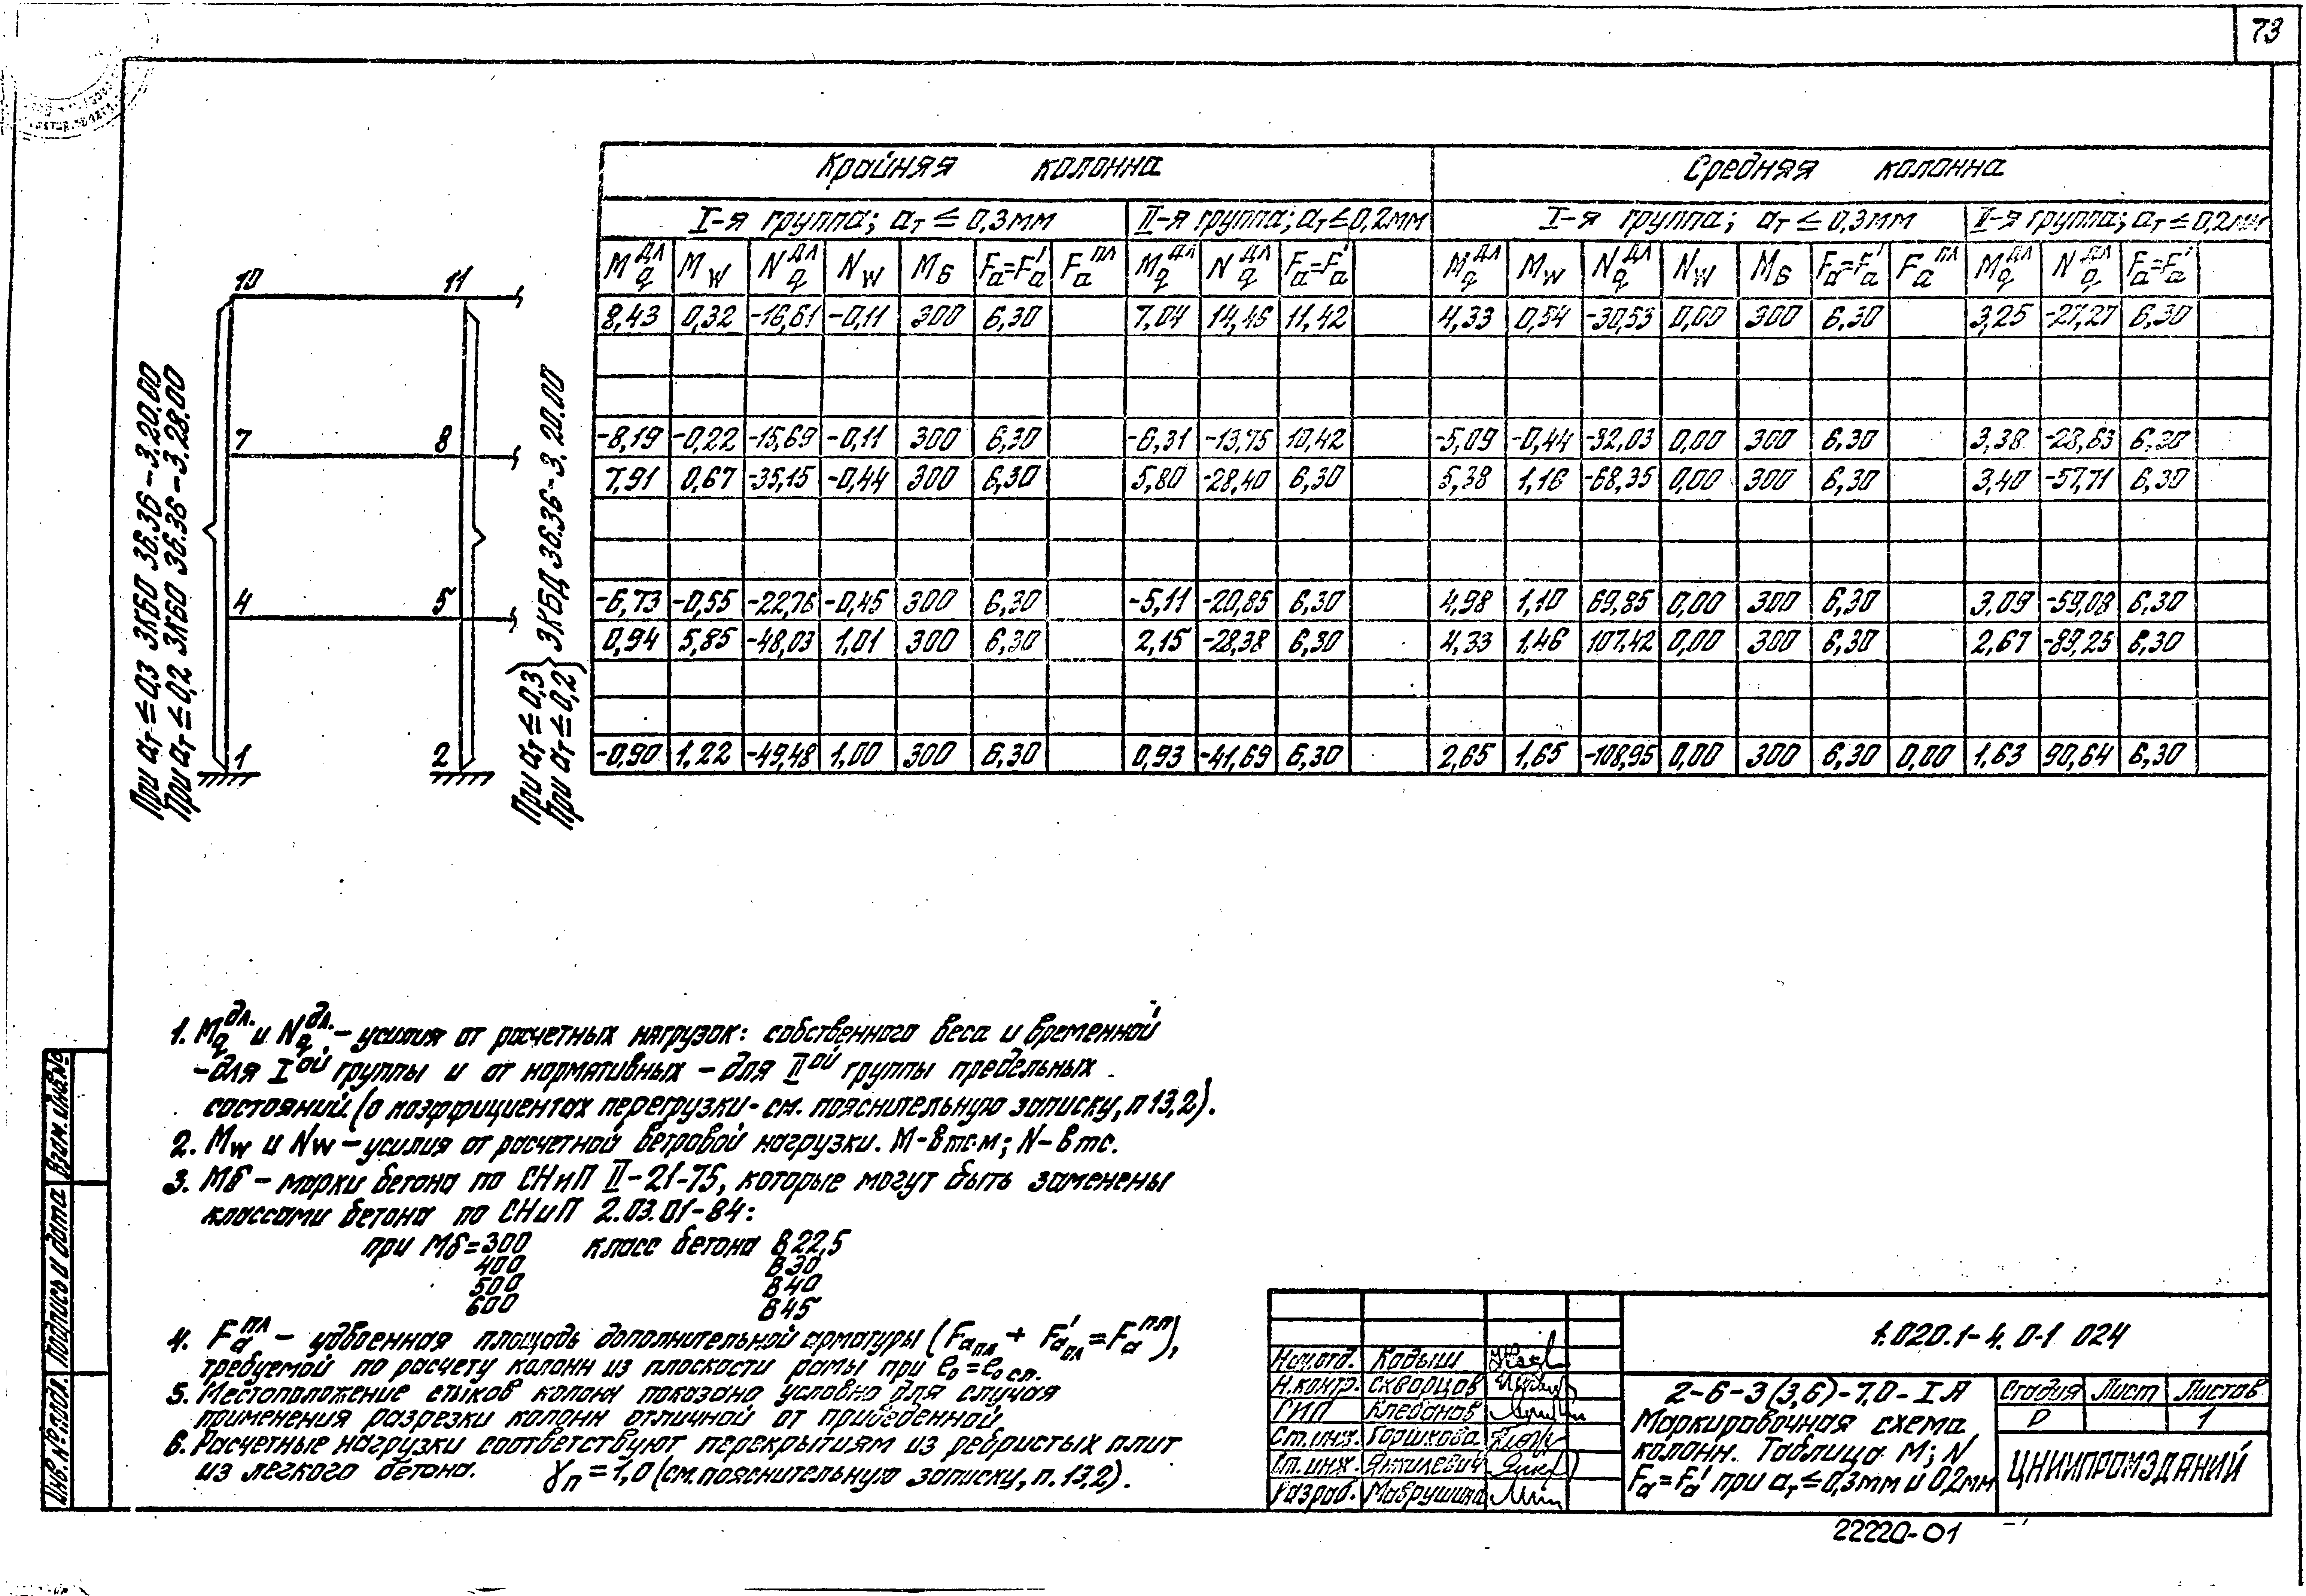 73
Крайняя колонна
Средняя колонна
I-я группа; aт ≤ 0,3мм
II-я группа; aт ≤ 0,2мм
I-я группа; aт ≤ 0,3мм
II-я группа; aт ≤ 0,2мм
Mq дл Mw Nq дл Nw Mб Fa=Fa' Fa пл Mq дл Nq дл Fa=Fa' Mq дл Mw Nq дл Nw Mб Fa=Fa' Fa пл Mq дл Nq дл Fa=Fa'
8,43 0,32 -16,61 -0,11 300 6,30 7,04 14,46 11,42 4,33 0,54 -30,53 0,00 300 6,30 3,25 -27,27 6,30
-8,19 -0,22 -15,69 -0,11 300 6,30 -6,31 -13,75 10,42 -5,09 -0,44 -32,03 0,00 300 6,30 3,38 -28,63 6,30
7,91 0,67 -35,15 -0,44 300 6,30 5,80 -28,40 6,30 5,38 1,16 -68,35 0,00 300 6,30 3,40 -57,71 6,30
-6,73 -0,55 -22,76 -0,45 300 6,30 -5,11 -20,85 6,30 4,98 1,10 69,85 0,00 300 6,30 3,09 -59,08 6,30
0,94 5,85 -48,03 1,01 300 6,30 2,15 -28,38 6,30 4,33 1,46 107,42 0,00 300 6,30 2,67 -89,25 6,30
-0,90 1,22 -49,48 1,00 300 6,30 0,93 -41,69 6,30 2,65 1,65 -108,95 0,00 300 6,30 0,00 1,63 90,64 6,30
10 11
7 8
4 5
1 2
При aт ≤ 0,3 3КБО 36.36-3.20.00
При aт ≤ 0,2 3КБО 36.36-3.28.00
При aт ≤ 0,3
При aт ≤ 0,2
3КБД 36.36-3.20.00
1. Mq дл. и Nq дл. – усилия от расчетных нагрузок: собственного веса и временной
-для I ой группы и от нормативных – для II ой группы предельных
состояний (о коэффициентах перегрузки - см. пояснительную записку, п 13,2).
2. Mw и Nw – усилия от расчетной ветровой нагрузки. М-в тс.м; N-в тс.
3. Мб – марки бетона по СНиП II-21-75, которые могут быть заменены
классами бетона по СНиП 2.03.01-84:
при Мб=300 класс бетона В22,5
400 В30
500 В40
600 В45
4. Fa пл – удвоенная площадь дополнительной арматуры (Fа пл + F'а пл = Fa пл),
требуемой по расчету колонн из плоскости рамы при e₀=e₀ сл.
5. Местоположение стыков колонн показано условно для случая
применения разрезки колонн отличной от приведенной.
6. Расчетные нагрузки соответствуют перекрытиям из ребристых плит
из легкого бетона. γп = 1,0 (см. пояснительную записку, п. 13,2).
Взам. инв.№
Подпись и дата
Инв.№ подл.
1.020.1-4. 0-1 024
Нач.отд. Кодыш
Н.контр. Скворцов
ГИП Клебанов
Ст.инж. Горшкова
Ст.инж. Янкилевич
Разраб. Маврушина
2-6-3(3,6)-7,0-IА
Маркировочная схема
колонн. Таблица М; N
Fa=Fa' при aт≤0,3мм и 0,2мм
Стадия Лист Листов
Р 1
ЦНИИПРОМЗДАНИЙ
22220-01